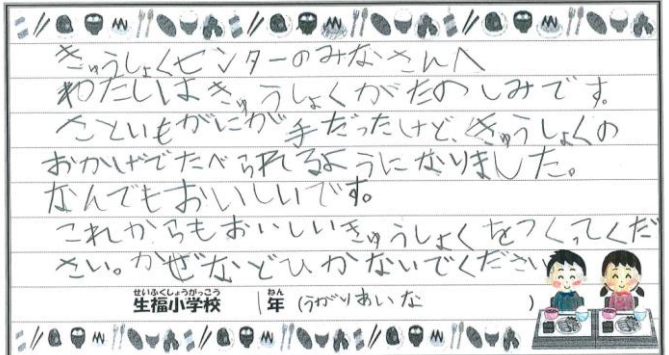 きゅうしょくセンターのみなさんへ
わたしはきゅうしょくがたのしみです。
さといもがにが手だったけど、きゅうしょくの
おかげでたべられるようになりました。
なんでもおいしいです。
これからもおいしいきゅうしょくをつくってくだ
さい。かぜなどひかないでください
せいふくしょうがっこう ねん
生福小学校 1年 (うがりあいな )